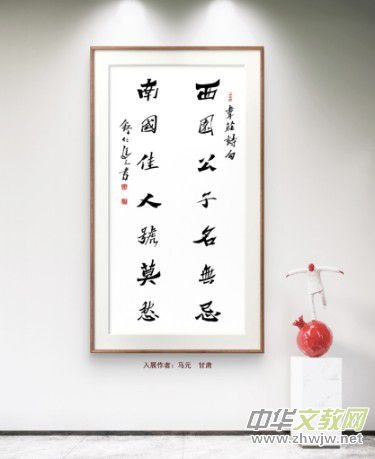 韋莊詩句
西園公子名無忌
南國佳人號莫愁
入展作者：马元 甘肃
中华文教网
www.zhwjw.net